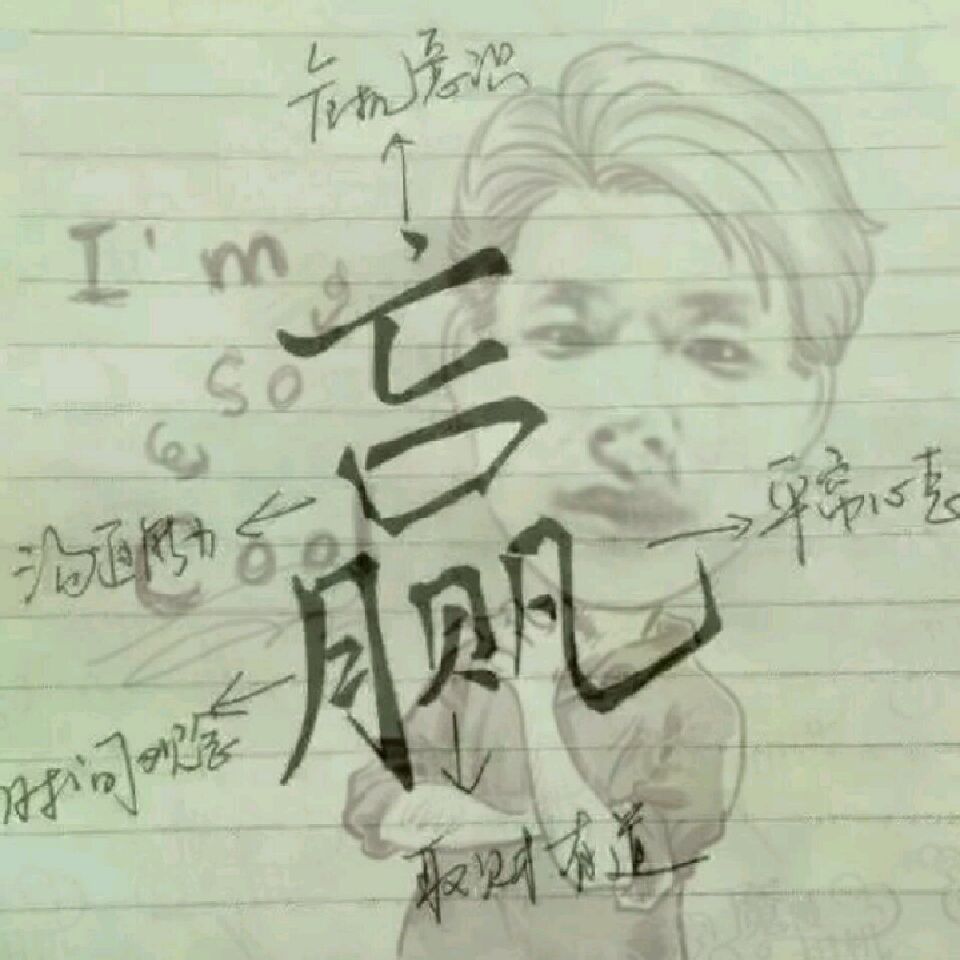 危机意识
I'm
so
赢
沟通能力
平常心态
Cool
时间观念
取财有道